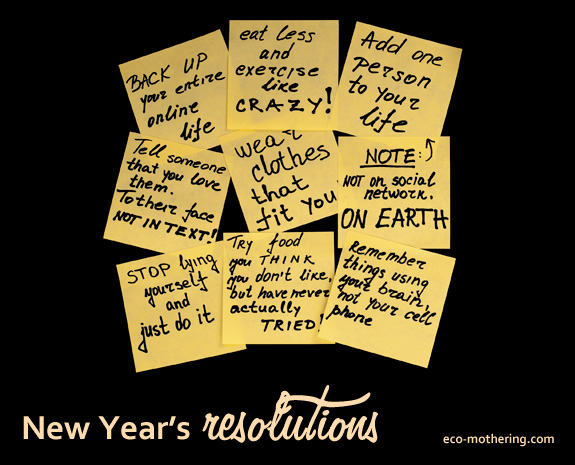 BACK UP
your entire
online
life
eat less
and
exercise
like
CRAZY!
Add one
person
to your
life
Tell someone
that you love
them.
To their face
NOT IN TEXT!
wear
clothes
that
fit you
NOTE:
NOT on social
network.
ON EARTH
STOP lying
yourself
and
just do it
Try food
you THINK
you don't like,
but have never
actually
TRIED!
Remember
things using
your brain,
not your cell
phone
New Year's resolutions
eco-mothering.com